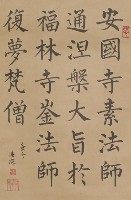 安國寺素法師
通涅槃大旨於
福林寺崟法師
復夢梵僧